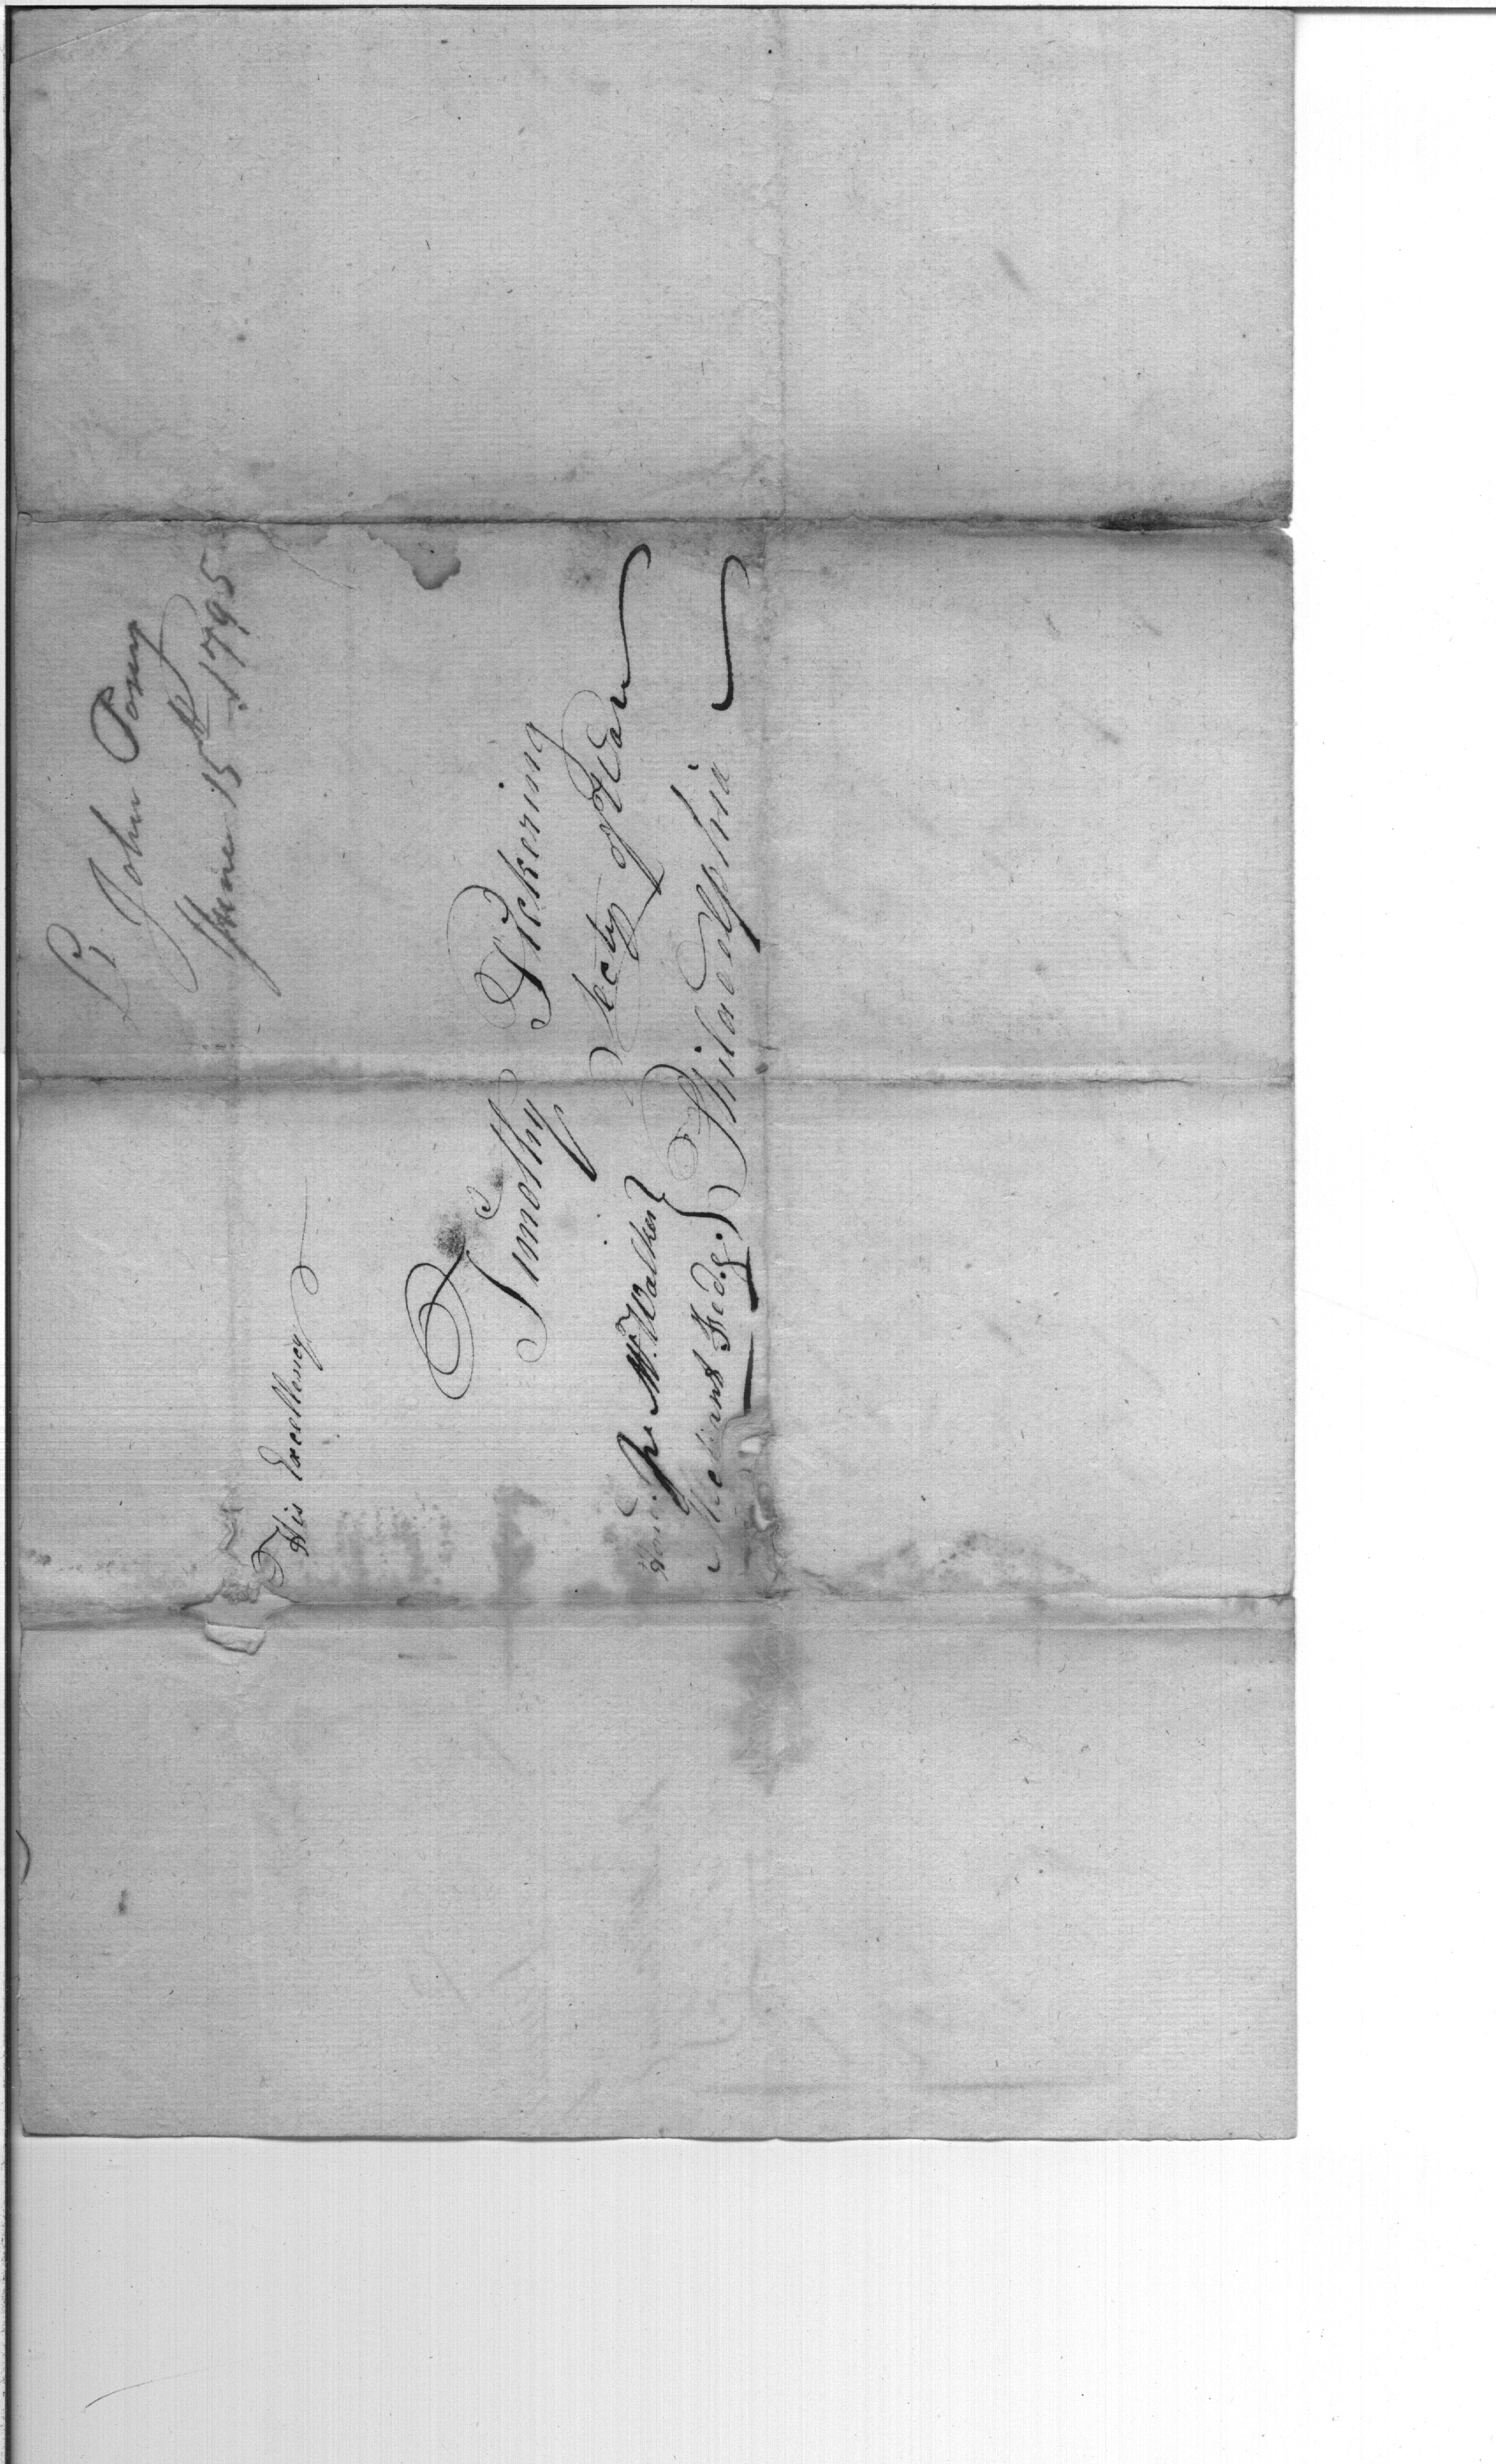 Lt John Posey
June 15th 1795
His Excellency
Timothy Pickering
Secty of War
Philadelphia
pr. Mr. Walker
Mechant Fredg.